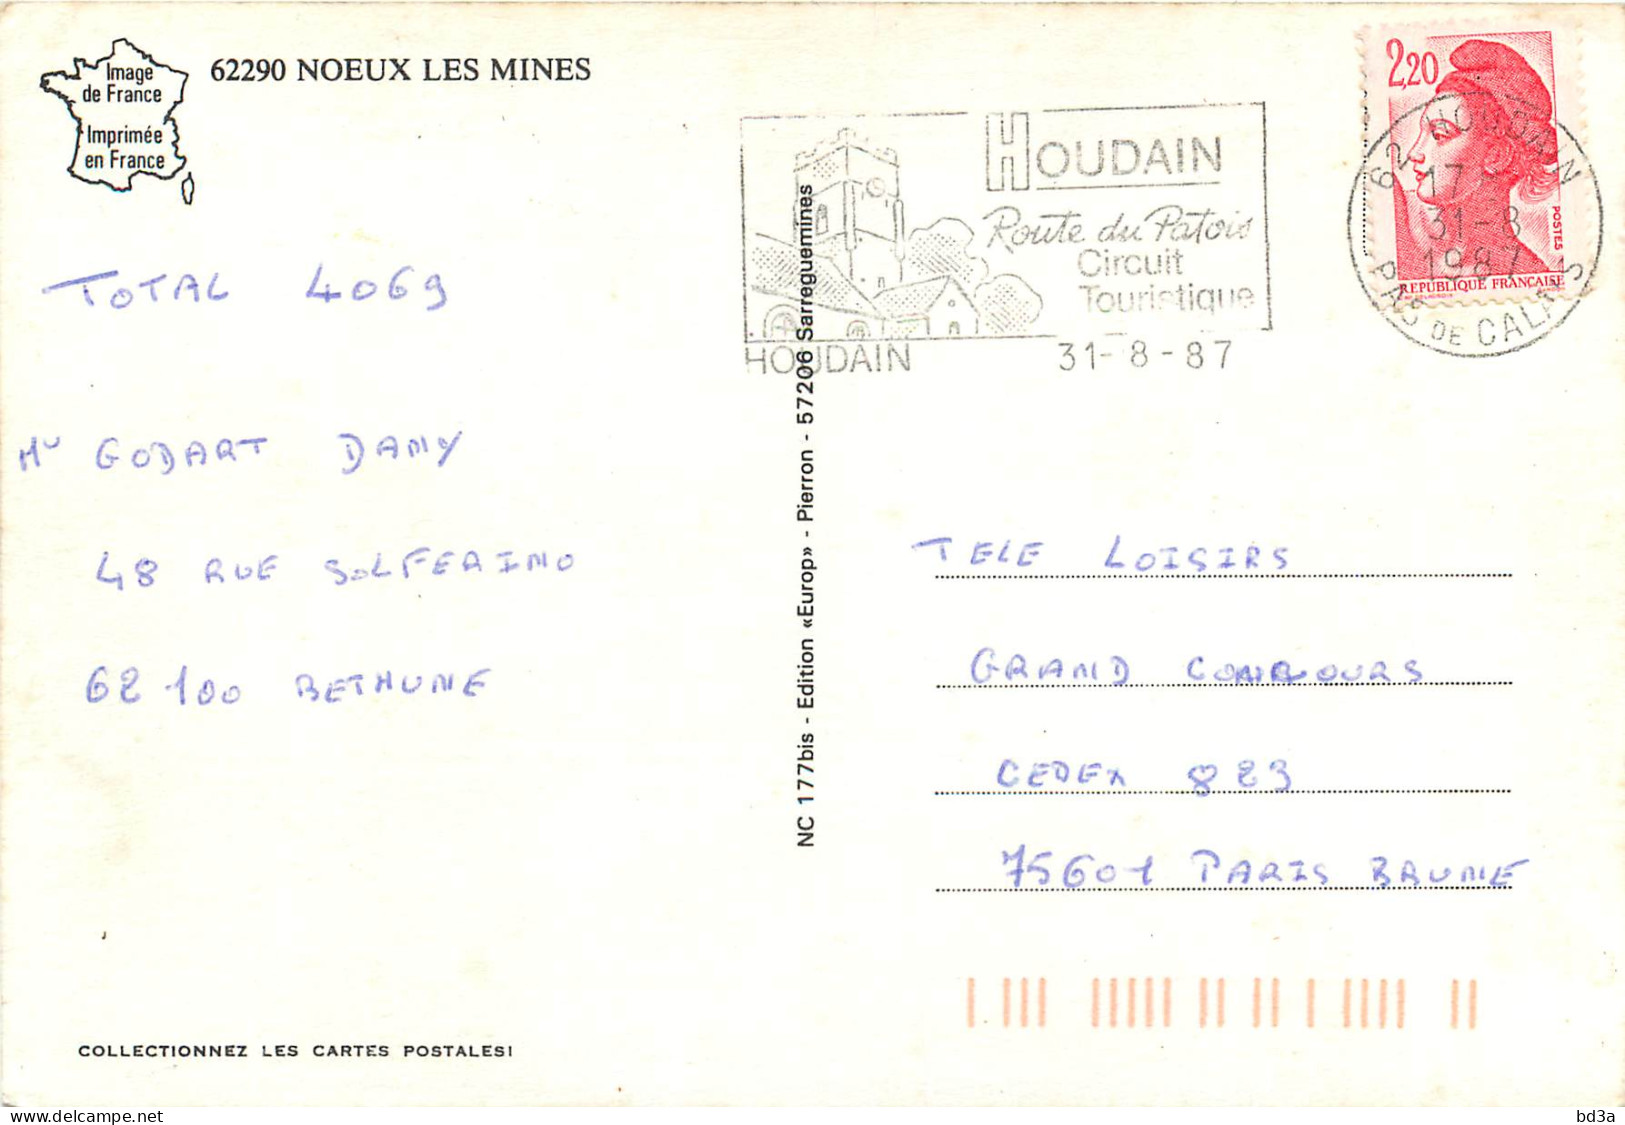 Image
de France
Imprimée
en France
62290 NOEUX LES MINES
HOUDAIN
Route du Patois
Circuit
Touristique
HOUDAIN 31-8-87
2,20
POSTES
REPUBLIQUE FRANÇAISE
62 HOUDAIN
17
31-8
1987
PAS DE CALAIS
TOTAL 4069
GODART DAMY
48 RUE SOLFERINO
62100 BETHUNE
NC 177bis - Edition «Europ» - Pierron - 57206 Sarreguemines
TELE LOISIRS
GRAND CONCOURS
CEDEX 823
75601 PARIS BRUNE
COLLECTIONNEZ LES CARTES POSTALES!
delcampe.net
bd3a